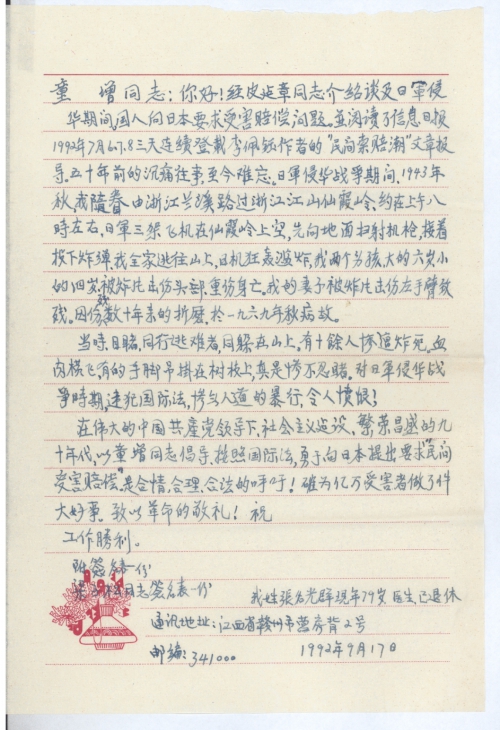 童 增同志：你好！经皮延章同志介绍谈及日軍侵
华期间国人向日本要求受害赔偿问题。並阅读了信息日报
1992年7月6.7.8三天连续登载李佩钰作者的"民间索赔潮"文章报
导。五十年前的沉痛往事，至今难忘。日軍侵华战争期间，1943年
秋，我隨眷由浙江兰溪路过浙江江山仙霞岭，约在上午八
時左右，日軍三架飞机在仙霞岭上空，先向地面扫射机枪，接着
投下炸弹。我全家逃往山上，日机狂轰滥炸，我两个男孩，大的六岁小
的四岁被炸片击伤头部，重伤身亡。我的妻子被炸片击伤左手臂致
残。因伤残数十年来的折磨，於一九六九年秋病故。
当時，目睹，同行逃难者，同躲在山上，有十餘人惨遭炸死。血
肉横飞，有的手脚吊掛在树枝上，真是惨不忍睹。对日軍侵华战
争時期，违犯国际法，惨无人道的暴行，令人愤恨！
在伟大的中国共産党领导下，社会主义建设，繁荣昌盛的九
十年代，以童增同志倡导，按照国际法，勇于向日本提出要求"民间
受害赔偿"是合情.合理.合法的呼吁！确为亿万受害者做了件
大好事。致以革命的敬礼！祝
工作勝利。
附签名表一份
同志签名表一份
我姓張名光辟现年79岁 医生已退休
通讯地址：江西省赣州市营房背2号
邮编：341000
1992年9月17日